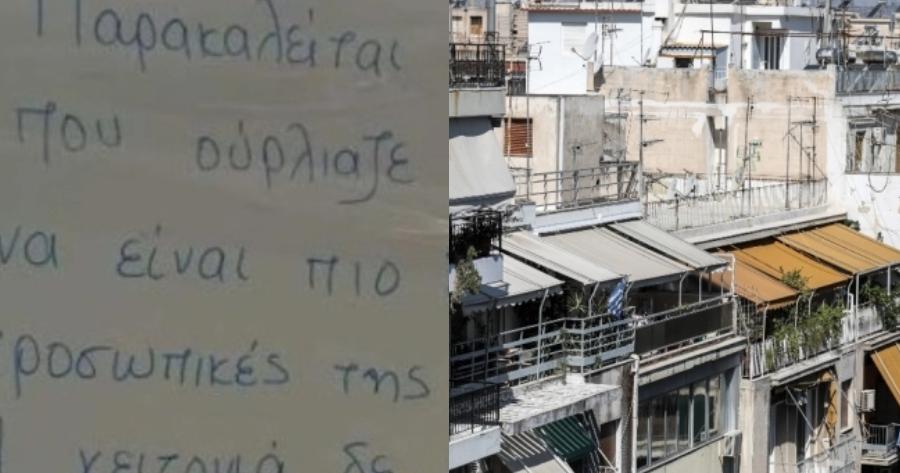 Παρακαλείται
που ούρλιαζε
να είναι πιο
ροσωπικές της
γειτονιά δε